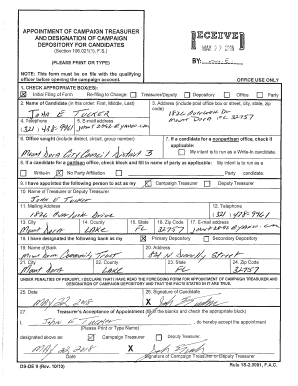 APPOINTMENT OF CAMPAIGN TREASURER
AND DESIGNATION OF CAMPAIGN
DEPOSITORY FOR CANDIDATES
(Section 106.021(1), F.S.)
(PLEASE PRINT OR TYPE)
NOTE: This form must be on file with the qualifying
officer before opening the campaign account.
RECEIVED
MAY 22
BY:
OFFICE USE ONLY
1. CHECK APPROPRIATE BOX(ES):
Initial Filing of Form Re-filing to Change: Treasurer/Deputy Depository Office Party
2. Name of Candidate (in this order: First, Middle, Last)
John E Tucker
3. Address (include post office box or street, city, state, zip code)
Mount Dora FL 32757
4. Telephone
(321) 438-9961
5. E-mail address
6. Office sought (include district, circuit, group number)
Mount Dora City Council District 3
7. If a candidate for a nonpartisan office, check if applicable:
My intent is to run as a Write-In candidate.
8. If a candidate for a partisan office, check block and fill in name of party as applicable: My intent is to run as a
Write-In No Party Affiliation Party candidate.
9. I have appointed the following person to act as my Campaign Treasurer Deputy Treasurer
10. Name of Treasurer or Deputy Treasurer
John E Tucker
11. Mailing Address
1826 Drive
12. Telephone
(321) 438-9961
13. City
Mount Dora
14. County
LAKE
15. State
FL
16. Zip Code
32757
17. E-mail address
18. I have designated the following bank as my Primary Depository Secondary Depository
19. Name of Bank
Mount Dora Community Trust
20. Address
821 N Donnelly Street
21. City
Mount Dora
22. County
LAKE
23. State
FL
24. Zip Code
32757
UNDER PENALTIES OF PERJURY, I DECLARE THAT I HAVE READ THE FOREGOING FORM FOR APPOINTMENT OF CAMPAIGN TREASURER AND DESIGNATION OF CAMPAIGN DEPOSITORY AND THAT THE FACTS STATED IN IT ARE TRUE.
25. Date
MAY 22, 2018
26. Signature of Candidate
X
27. Treasurer's Acceptance of Appointment (fill in the blanks and check the appropriate block)
I, John E Tucker , do hereby accept the appointment
(Please Print or Type Name)
designated above as: Campaign Treasurer Deputy Treasurer.
MAY 22, 2018 X
Date Signature of Campaign Treasurer or Deputy Treasurer
DS-DE 9 (Rev. 10/10) Rule 1S-2.0001, F.A.C.